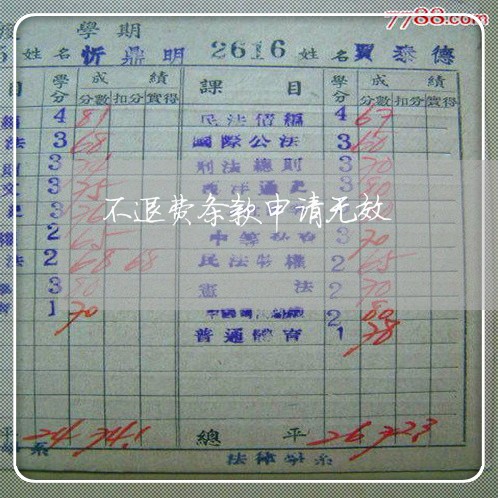 7788.com
度 學期
5 姓名 忻鼎明 2616 姓名 賈泰德
目 學分 成績 課目 學分 成績
分數 扣分 實得 分數 扣分 實得
4 81 民法債編 4 67
法 3 68 國際公法 3 60
3 刑法總則 3 70
3 75 西洋通史 3 80
不退费条款申请无效
2 65 3 70
法 2 68 68 民法物權 2 65
3 80 憲法 2 70
1 70 2 80
普通體育 1 78
平 24 74.1 總平 26 72.3
系 法律學系